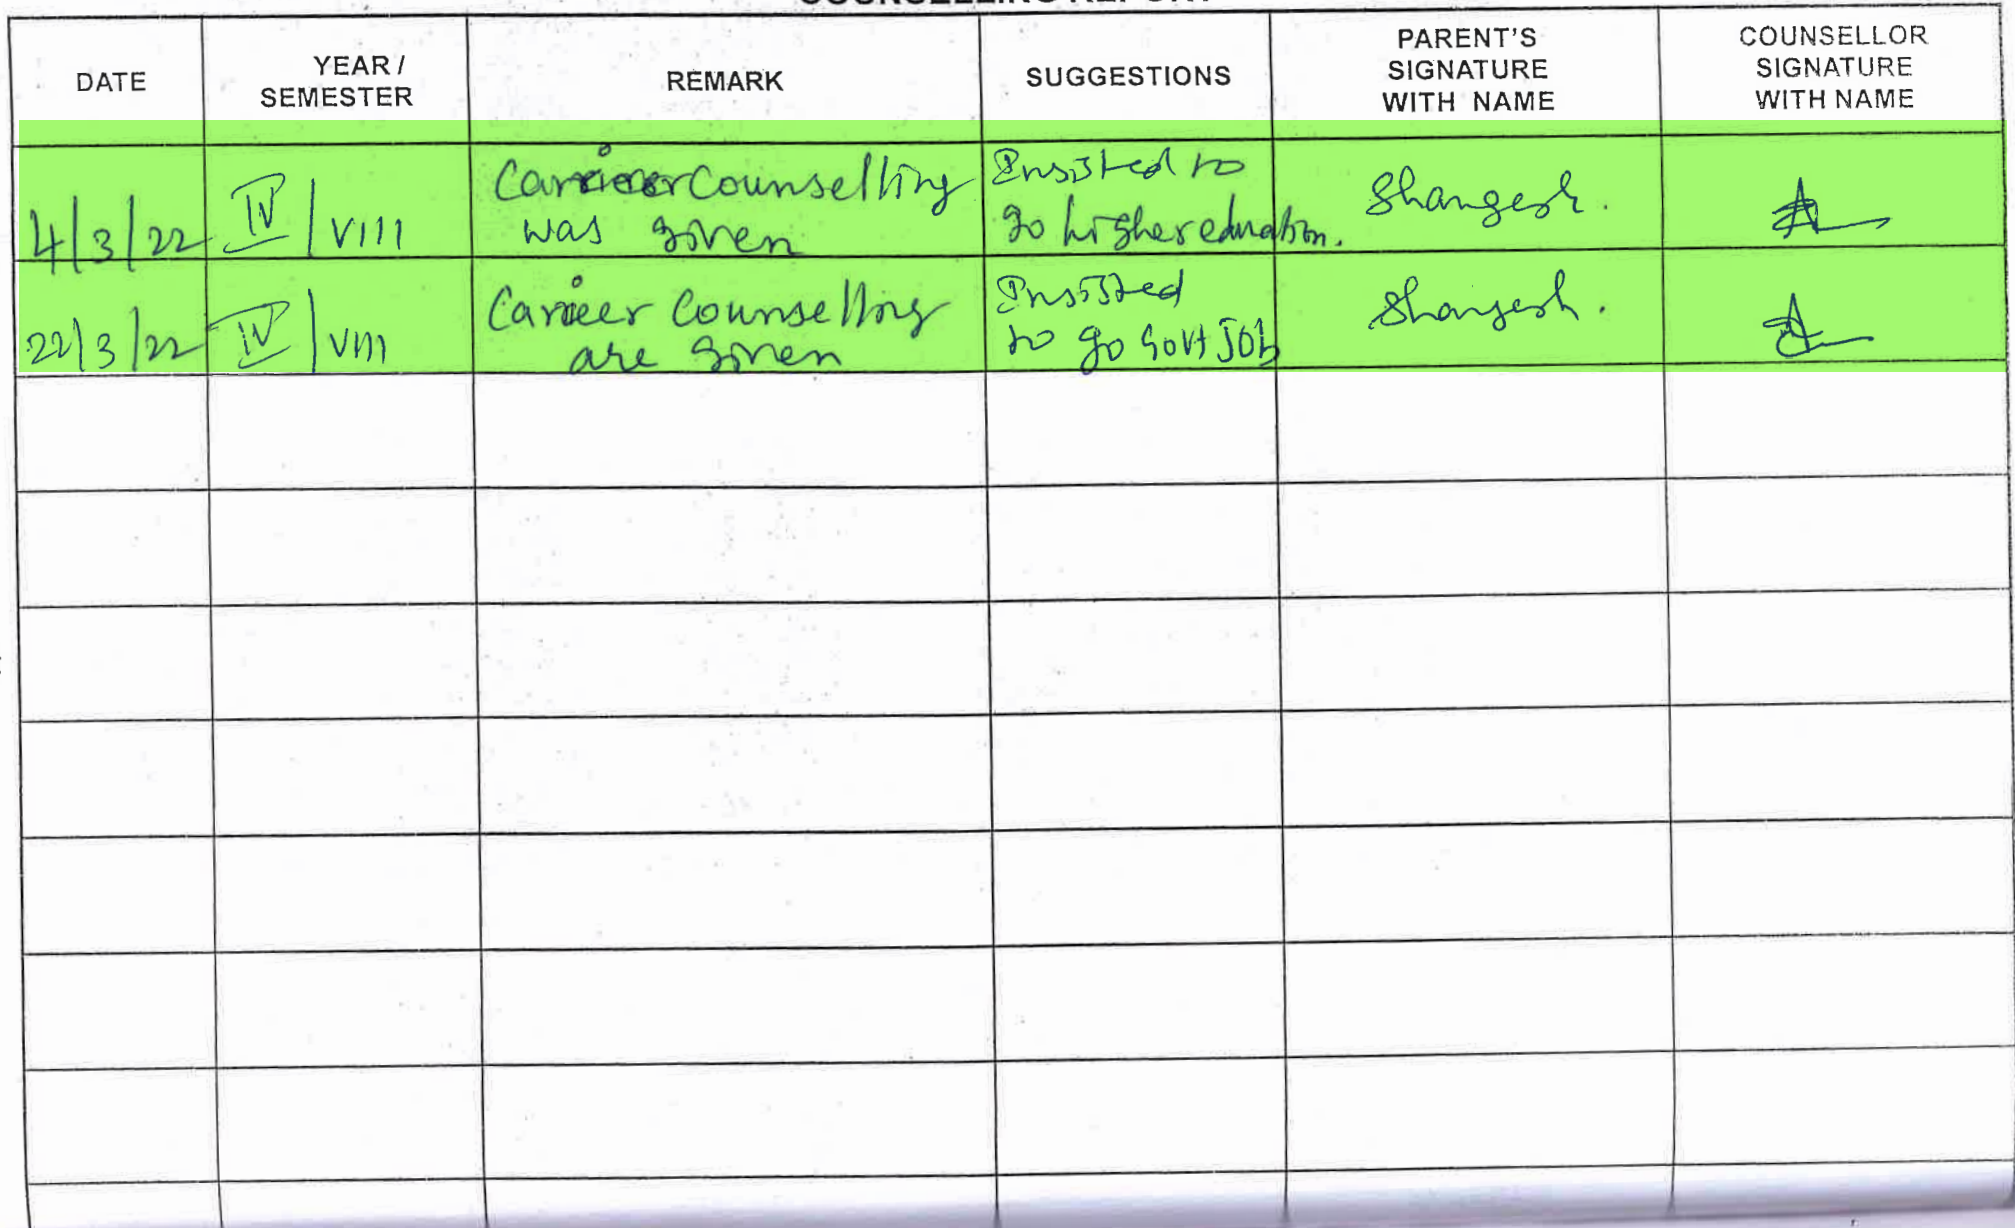 COUNSELLING REPORT
DATE
YEAR /
SEMESTER
REMARK
SUGGESTIONS
PARENT'S
SIGNATURE
WITH NAME
COUNSELLOR
SIGNATURE
WITH NAME
4/3/22
IV / VIII
Carrier Counselling
was given
Insisted to
go higher education.
Shangesh.
22/3/22
IV / VIII
Carieer Counselling
are given
Insisted
to go Govt Job
Shangesh.